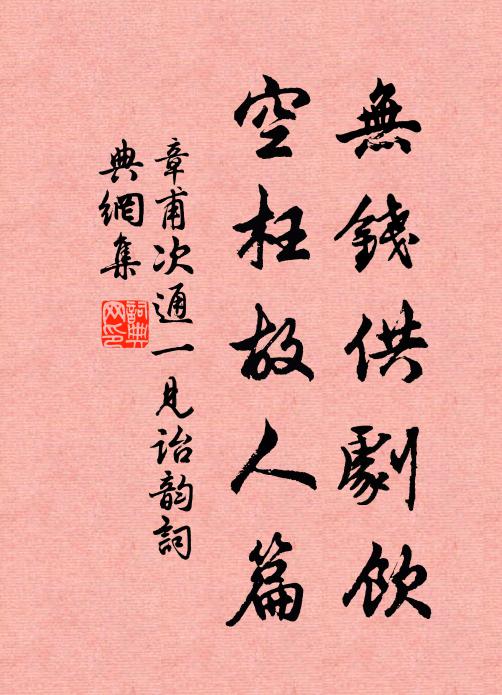 無錢供劇飲
空枉故人篇
章甫次通一見詒韵詞
典網集
詞典网印